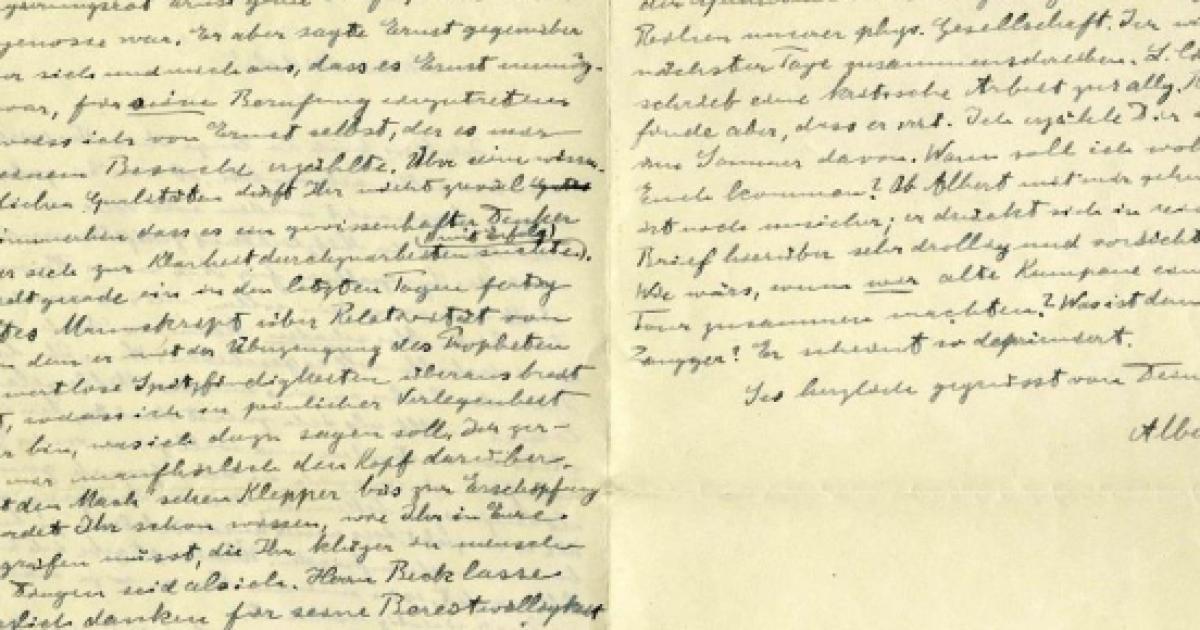 genosse war. Er aber sagte Ernst gegenüber
sich und mich aus, dass es Ernst unmög-
war, für seine Berufung einzutreten
weiss ich von Ernst selbst, der es mir
Besuche erzählte. Über eine wissen-
lichen Qualitäten dürft Ihr nicht zuviel
immerhin dass es ein gewissenhafter Denker
(mit Erfolg)
er sich zur Klarheit durchzuarbeiten suchte).
gerade ein in den letzten Tagen fertig
tes Manuskript über Relativität von
in dem er mit der Überzeugung des Propheten
wertlose Spitzfindigkeiten überaus breit
t, sodass ich in peinlicher Verlegenheit
bin, was ich dazu sagen soll. Ich zer-
mir unaufhörlich den Kopf darüber.
t den Mach'schen Klepper bis zur Erschöpfung
werdet Ihr schon wissen, wie Ihr in Eure
greifen müsst, die Ihr klüger in mensch-
Dingen seid als ich. Herrn Beck lasse
zlich danken für seine Bereitwilligkeit
Reihen unserer phys. Gesellschaft. Ich
nächster Tage zusammenschreiben.
schrieb eine kritische Arbeit zur allg.
finde aber, dass er irrt. Ich erzähle Dir
im Sommer davon. Wann soll ich wohl
Euch kommen? Ob Albert mit mir gehen
ist noch unsicher; er drückt sich in
Brief hierüber sehr drollig und vorsichti
Wie wärs, wenn wir alte Kumpane eine
Tour zusammen machten? Was ist denn
Zangger? Er scheint so deprimiert.
Sei herzlich gegrüsst von Dein
Albe